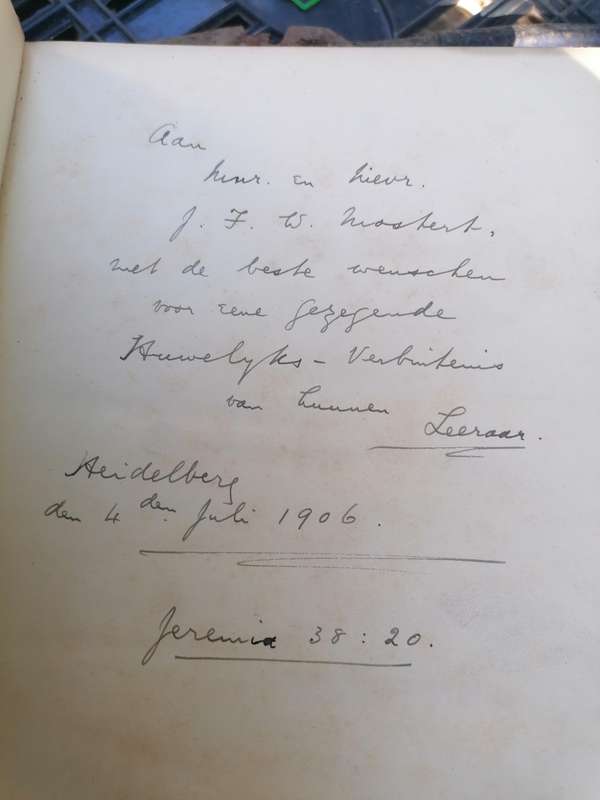 Aan
Mnr. en Mevr.
J. F. W. Mostert,
met de beste wenschen
voor eene gezegende
Huwelyks - Verbintenis
van hunnen Leeraar.
Heidelberg
den 4 den Juli 1906.
Jeremia 38 : 20.